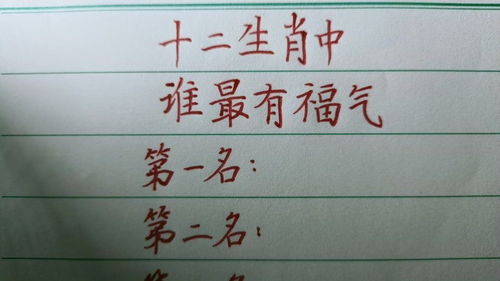 十二生肖中
谁最有福气
第一名：
第二名：